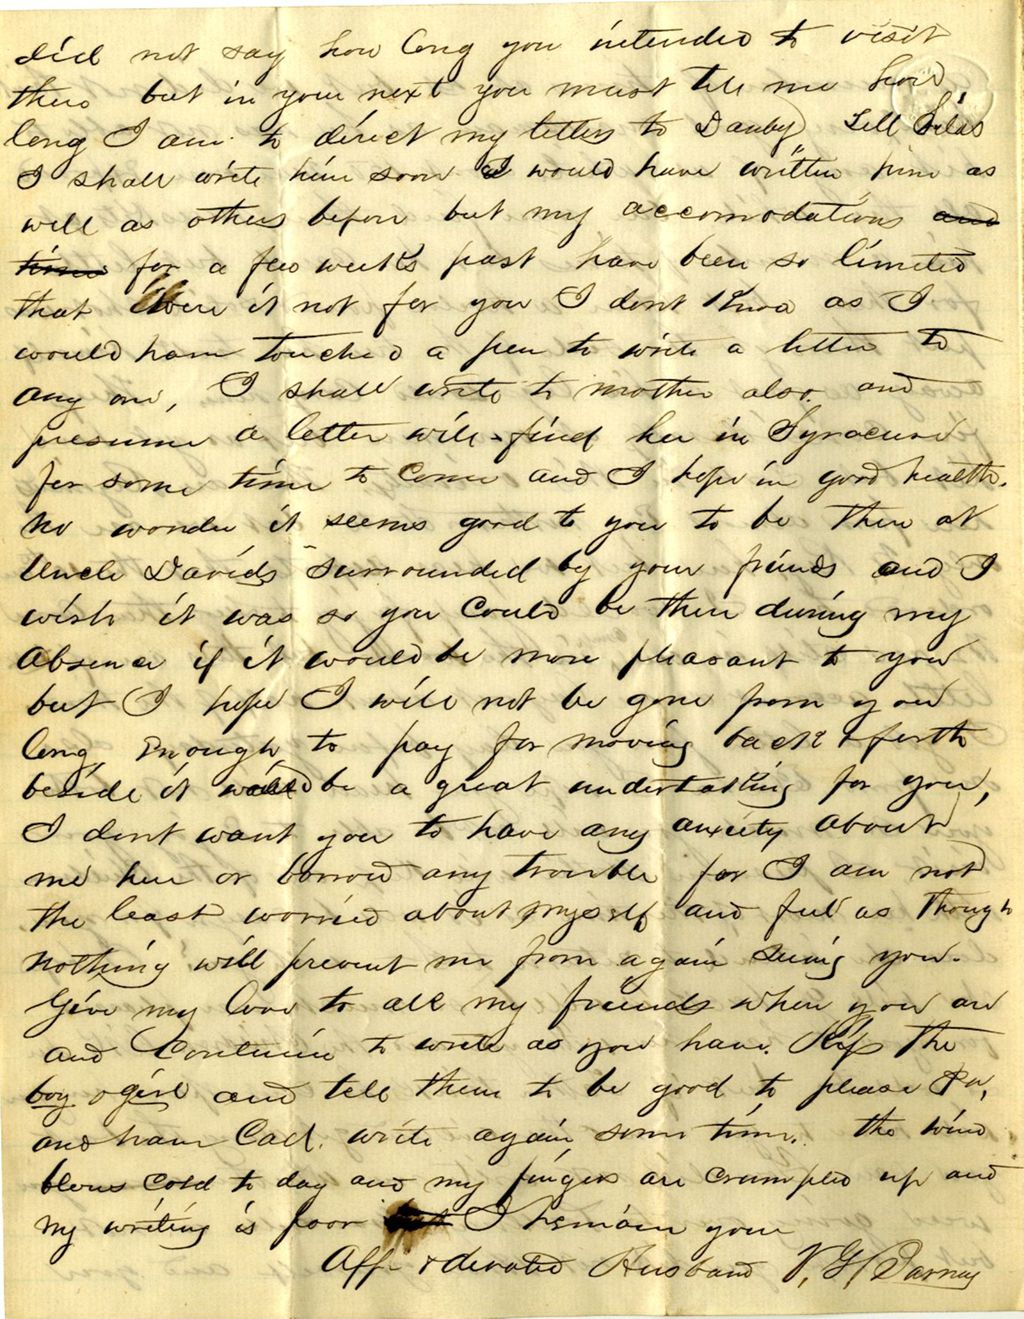 did not say how long you intended to visit
there but in your next you must tell me how
long I am to direct my letters to Danby. Tell Silas
I shall write him soon I would have written him as
well as others before but my accomodations and
time for a few weeks past have been so limited
that were it not for you I dont know as I
would have touched a pen to write a letter to
any one, I shall write to mother also. and
presume a letter will find her in Syracuse
for some time to come and I hope in good health.
No wonder it seems good to you to be there at
Uncle Davids surrounded by your friends and I
wish it was so you could be there during my
absence if it would be more pleasant to you
but I hope I will not be gone from you
long enough to pay for moving back & forth
beside it would be a great undertaking for you,
I dont want you to have any anxiety about
me here or borrow any trouble for I am not
the least worried about myself and feel as though
nothing will prevent me from again seeing you.
Give my love to all my friends where you are
and continue to write as you have. Kiss the
boy & girl and tell them to be good to please Pa,
and have Cad. write again some time. the wind
blows cold to day and my fingers are crumpled up and
my writing is poor but I remain your
Aff & devoted Husband V. G. Barney